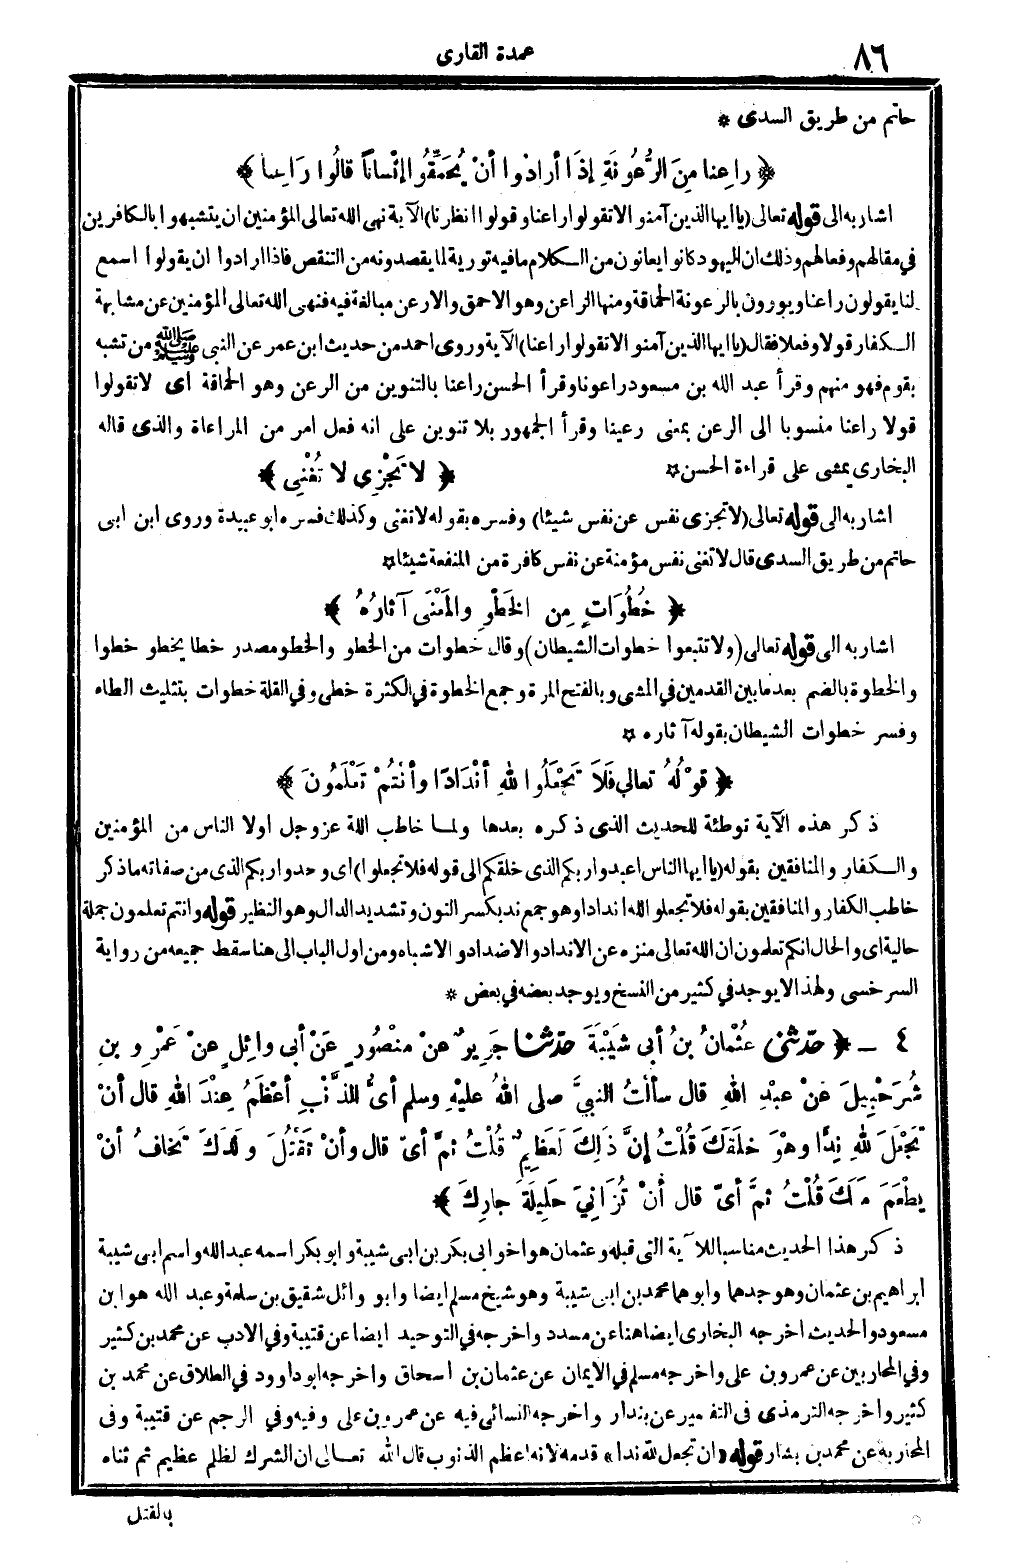 ٨٦
عمدة القارى
حاتم من طريق السدى *
﴿ راعنا مِنَ الرُّعُونَةِ إذَا أرادُوا أنْ يُحَمِّقُوا إنْساناً قالُوا رَاعِنا ﴾
اشار به الى قوله تعالى (يا ايها الذين آمنوا لا تقولوا راعنا وقولوا انظرنا) الآية نهى الله تعالى المؤمنين ان يتشبهوا بالكافرين
في مقالهم وفعالهم وذلك ان اليهود كانوا يعانون من الكلام ما فيه تورية لما يقصدونه من التنقص فاذا ارادوا ان يقولوا اسمع
لنا يقولون راعنا ويورون بالرعونة الحماقة ومنها الراعن وهو الاحمق والارعن مبالغة فيه فنهى الله تعالى المؤمنين عن مشابهة
الكفار قولا وفعلا فقال (يا ايها الذين آمنوا لا تقولوا راعنا) الآية وروى احمد من حديث ابن عمر عن النبى ﷺ من تشبه
بقوم فهو منهم وقرأ عبد الله بن مسعود راعونا وقرأ الحسن راعنا بالتنوين من الرعن وهو الحماقة اى لا تقولوا
قولا راعنا منسوبا الى الرعن بمعنى رعينا وقرأ الجمهور بلا تنوين على انه فعل امر من المراعاة والذى قاله
البخارى يمشى على قراءة الحسن *
﴿ لا تَجْزِي لا تُغْنِي ﴾
اشار به الى قوله تعالى (لا تجزى نفس عن نفس شيئا) وفسره بقوله لا تغنى وكذلك فسره ابو عبيدة وروى ابن ابى
حاتم من طريق السدى قال لا تغنى نفس مؤمنة عن نفس كافرة من المنفعة شيئا *
﴿ خُطُوَاتِ مِن الخَطْوِ والمَعْنَى آثارُهُ ﴾
اشار به الى قوله تعالى (ولا تتبعوا خطوات الشيطان) وقال خطوات من الخطو والخطو مصدر خطا يخطو خطوا
والخطوة بالضم بعد ما بين القدمين في المشى وبالفتح المرة وجمع الخطوة في الكثرة خطى وفي القلة خطوات بتثليث الطاء
وفسر خطوات الشيطان بقوله آثاره *
﴿ قوْلُهُ تعالى فَلاَ تَجْعَلُوا للهِ أنْدَادًا وأنْتُمْ تَعْلَمُونَ ﴾
ذكر هذه الآية توطئة للحديث الذى ذكره بعدها ولما خاطب الله عز وجل اولا الناس من المؤمنين
والكفار والمنافقين بقوله (يا ايها الناس اعبدوا ربكم الذى خلقكم الى قوله فلا تجعلوا) اى وحدوا ربكم الذى من صفاته ما ذكر
خاطب الكفار والمنافقين بقوله فلا تجعلوا لله اندادا وهو جمع ند بكسر النون وتشديد الدال وهو النظير قوله وانتم تعلمون جملة
حالية اى والحال انكم تعلمون ان الله تعالى منزه عن الانداد والاضداد والاشباه ومن اول الباب الى هنا سقط جميعه من رواية
السرخسى ولهذا لا يوجد في كثير من النسخ ويوجد بعضه في بعض *
٤ ـ ﴿ حدثنى عُثْمانُ بنُ أبى شَيْبَةَ حدثنا جَرِيرٌ عنْ منْصُورٍ عَنْ أبى وائِلٍ عنْ عَمْرِو بنِ
شُرَحْبِيلَ عَنْ عبْدِ اللهِ قال سألْتُ النبيَّ صلى اللهُ عليْهِ وسلم أىُّ الذَّنْبِ أعْظَمُ عِنْدَ اللهِ قال أنْ
تَجْعَلَ للهِ نِدًّا وهْوَ خلَقَكَ قُلْتُ إنَّ ذَلِكَ لَعَظِيمٌ قُلْتُ ثمَّ أىّ قال وأنْ تَقْتُلَ ولَدَكَ تَخافُ أنْ
يطْعَمَ مَعَكَ قُلْتُ ثمَّ أىّ قال أنْ تُزَانِيَ حَلِيلَةَ جارِكَ ﴾
ذكر هذا الحديث مناسبا للآية التى قبله وعثمان هو اخو ابى بكر بن ابى شيبة وابو بكر اسمه عبد الله واسم ابى شيبة
ابراهيم بن عثمان وهو جدهما وابوهما محمد بن ابى شيبة وهو شيخ مسلم ايضا وابو وائل شقيق بن سلمة وعبد الله هو ابن
مسعود والحديث اخرجه البخارى ايضا هنا عن مسدد واخرجه في التوحيد ايضا عن قتيبة وفي الادب عن محمد بن كثير
وفي المحاربين عن عمرو بن على واخرجه مسلم في الايمان عن عثمان بن اسحاق واخرجه ابو داوود في الطلاق عن محمد بن
كثير واخرجه الترمذى فى التفسير عن بندار واخرجه النسائى فيه عن عمرو بن على وفيه وفي الرجم عن قتيبة وفى
المحاربة عن محمد بن بشار قوله «ان تجعل لله ندا» قدمه لانه اعظم الذنوب قال الله تعالى ان الشرك لظلم عظيم ثم ثناه
بالقتل